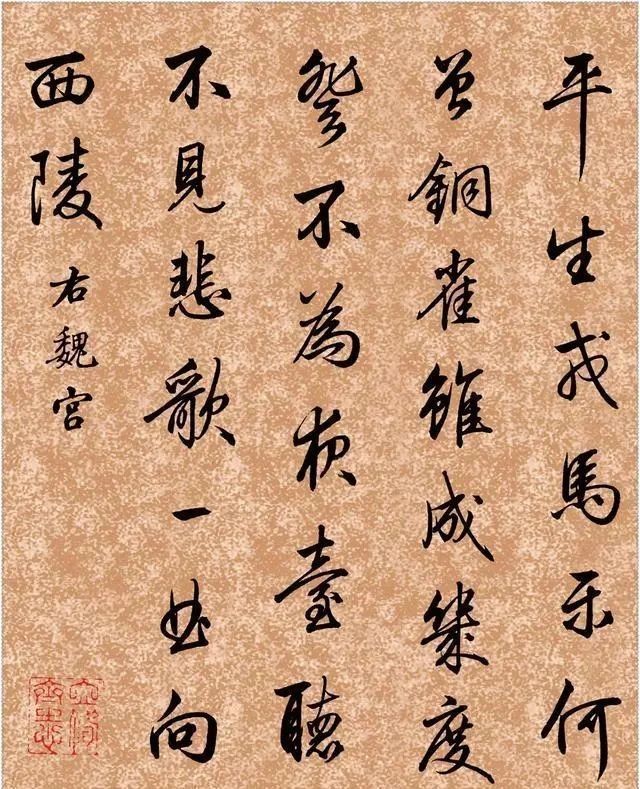 平生戎馬乐何
曾銅雀雖成幾度
登不為夜臺聽
不見悲歌一曲向
西陵
右魏宮